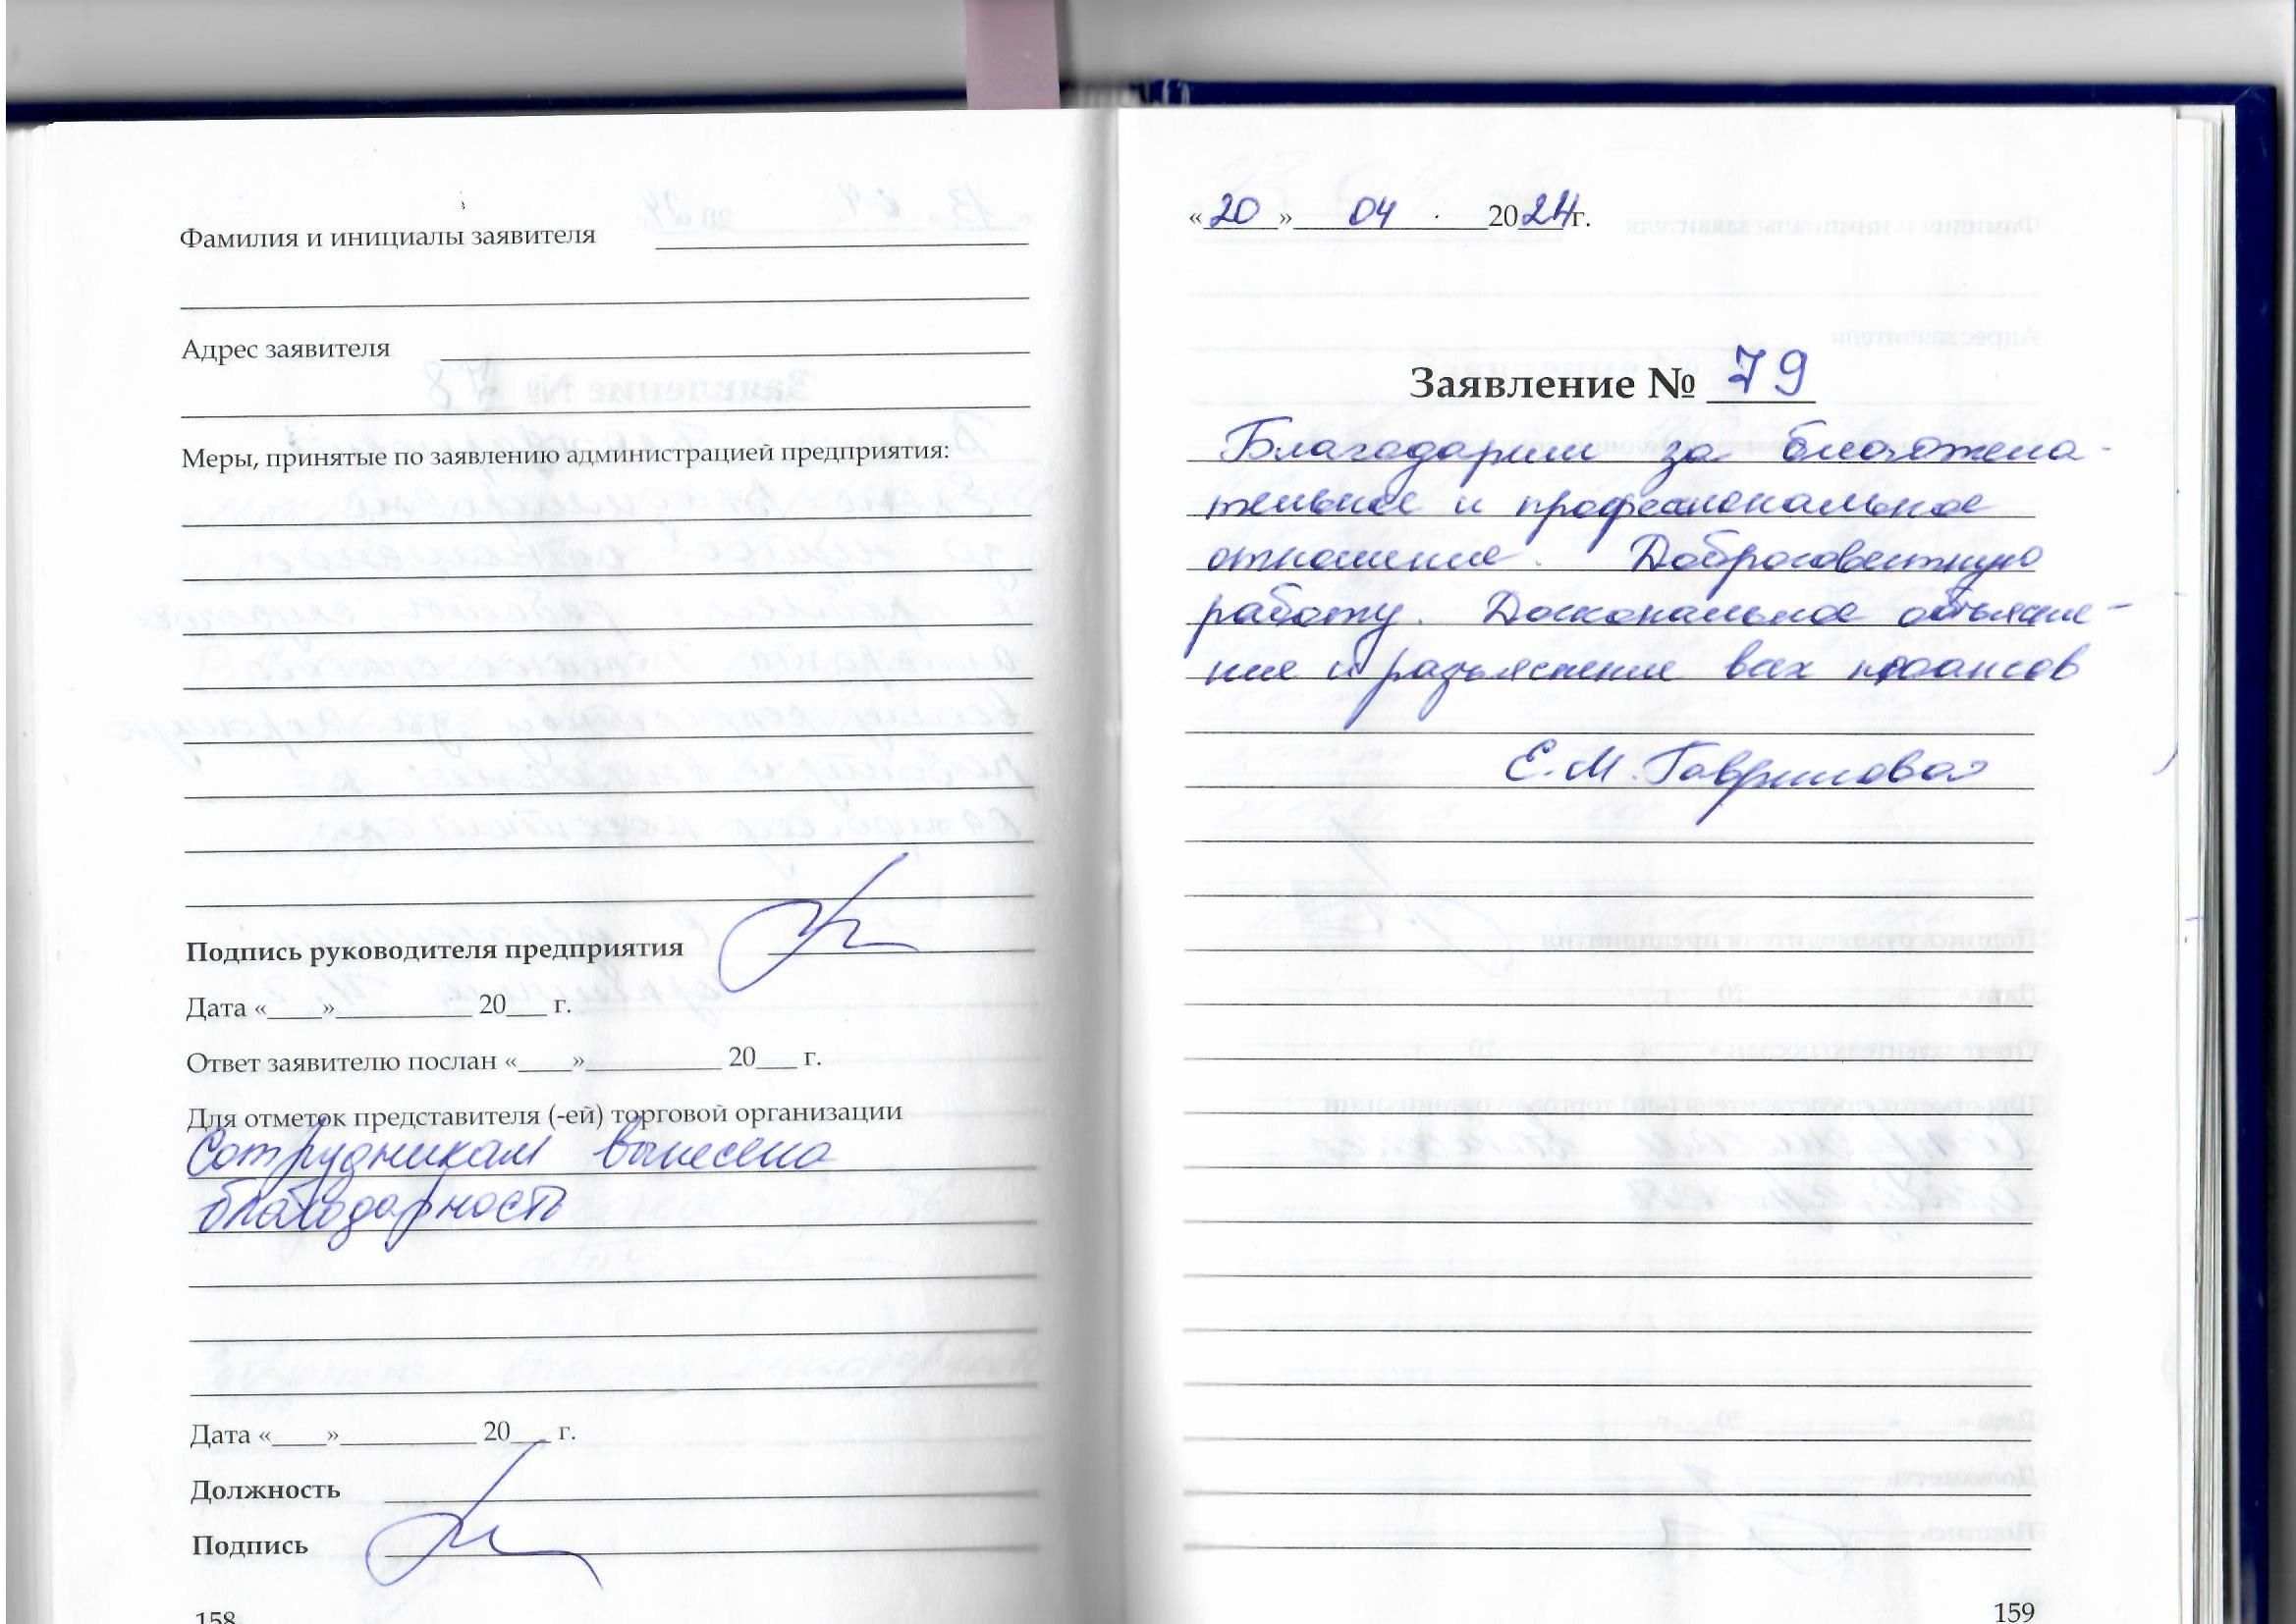 Фамилия и инициалы заявителя
Адрес заявителя
Меры, принятые по заявлению администрацией предприятия:
Подпись руководителя предприятия
Дата «____»__________ 20___ г.
Ответ заявителю послан «____»__________ 20___ г.
Для отметок представителя (-ей) торговой организации
Сотрудникам вынесена
благодарность
Дата «____»__________ 20___ г.
Должность
Подпись
158
«20» 04 . 2024г.
Заявление № 79
Благодарим за благожела-
тельное и профессиональное
отношение. Добросовестную
работу. Доскональное объясне-
ние и разъяснение всех нюансов
Е.М. Гаврилова
159